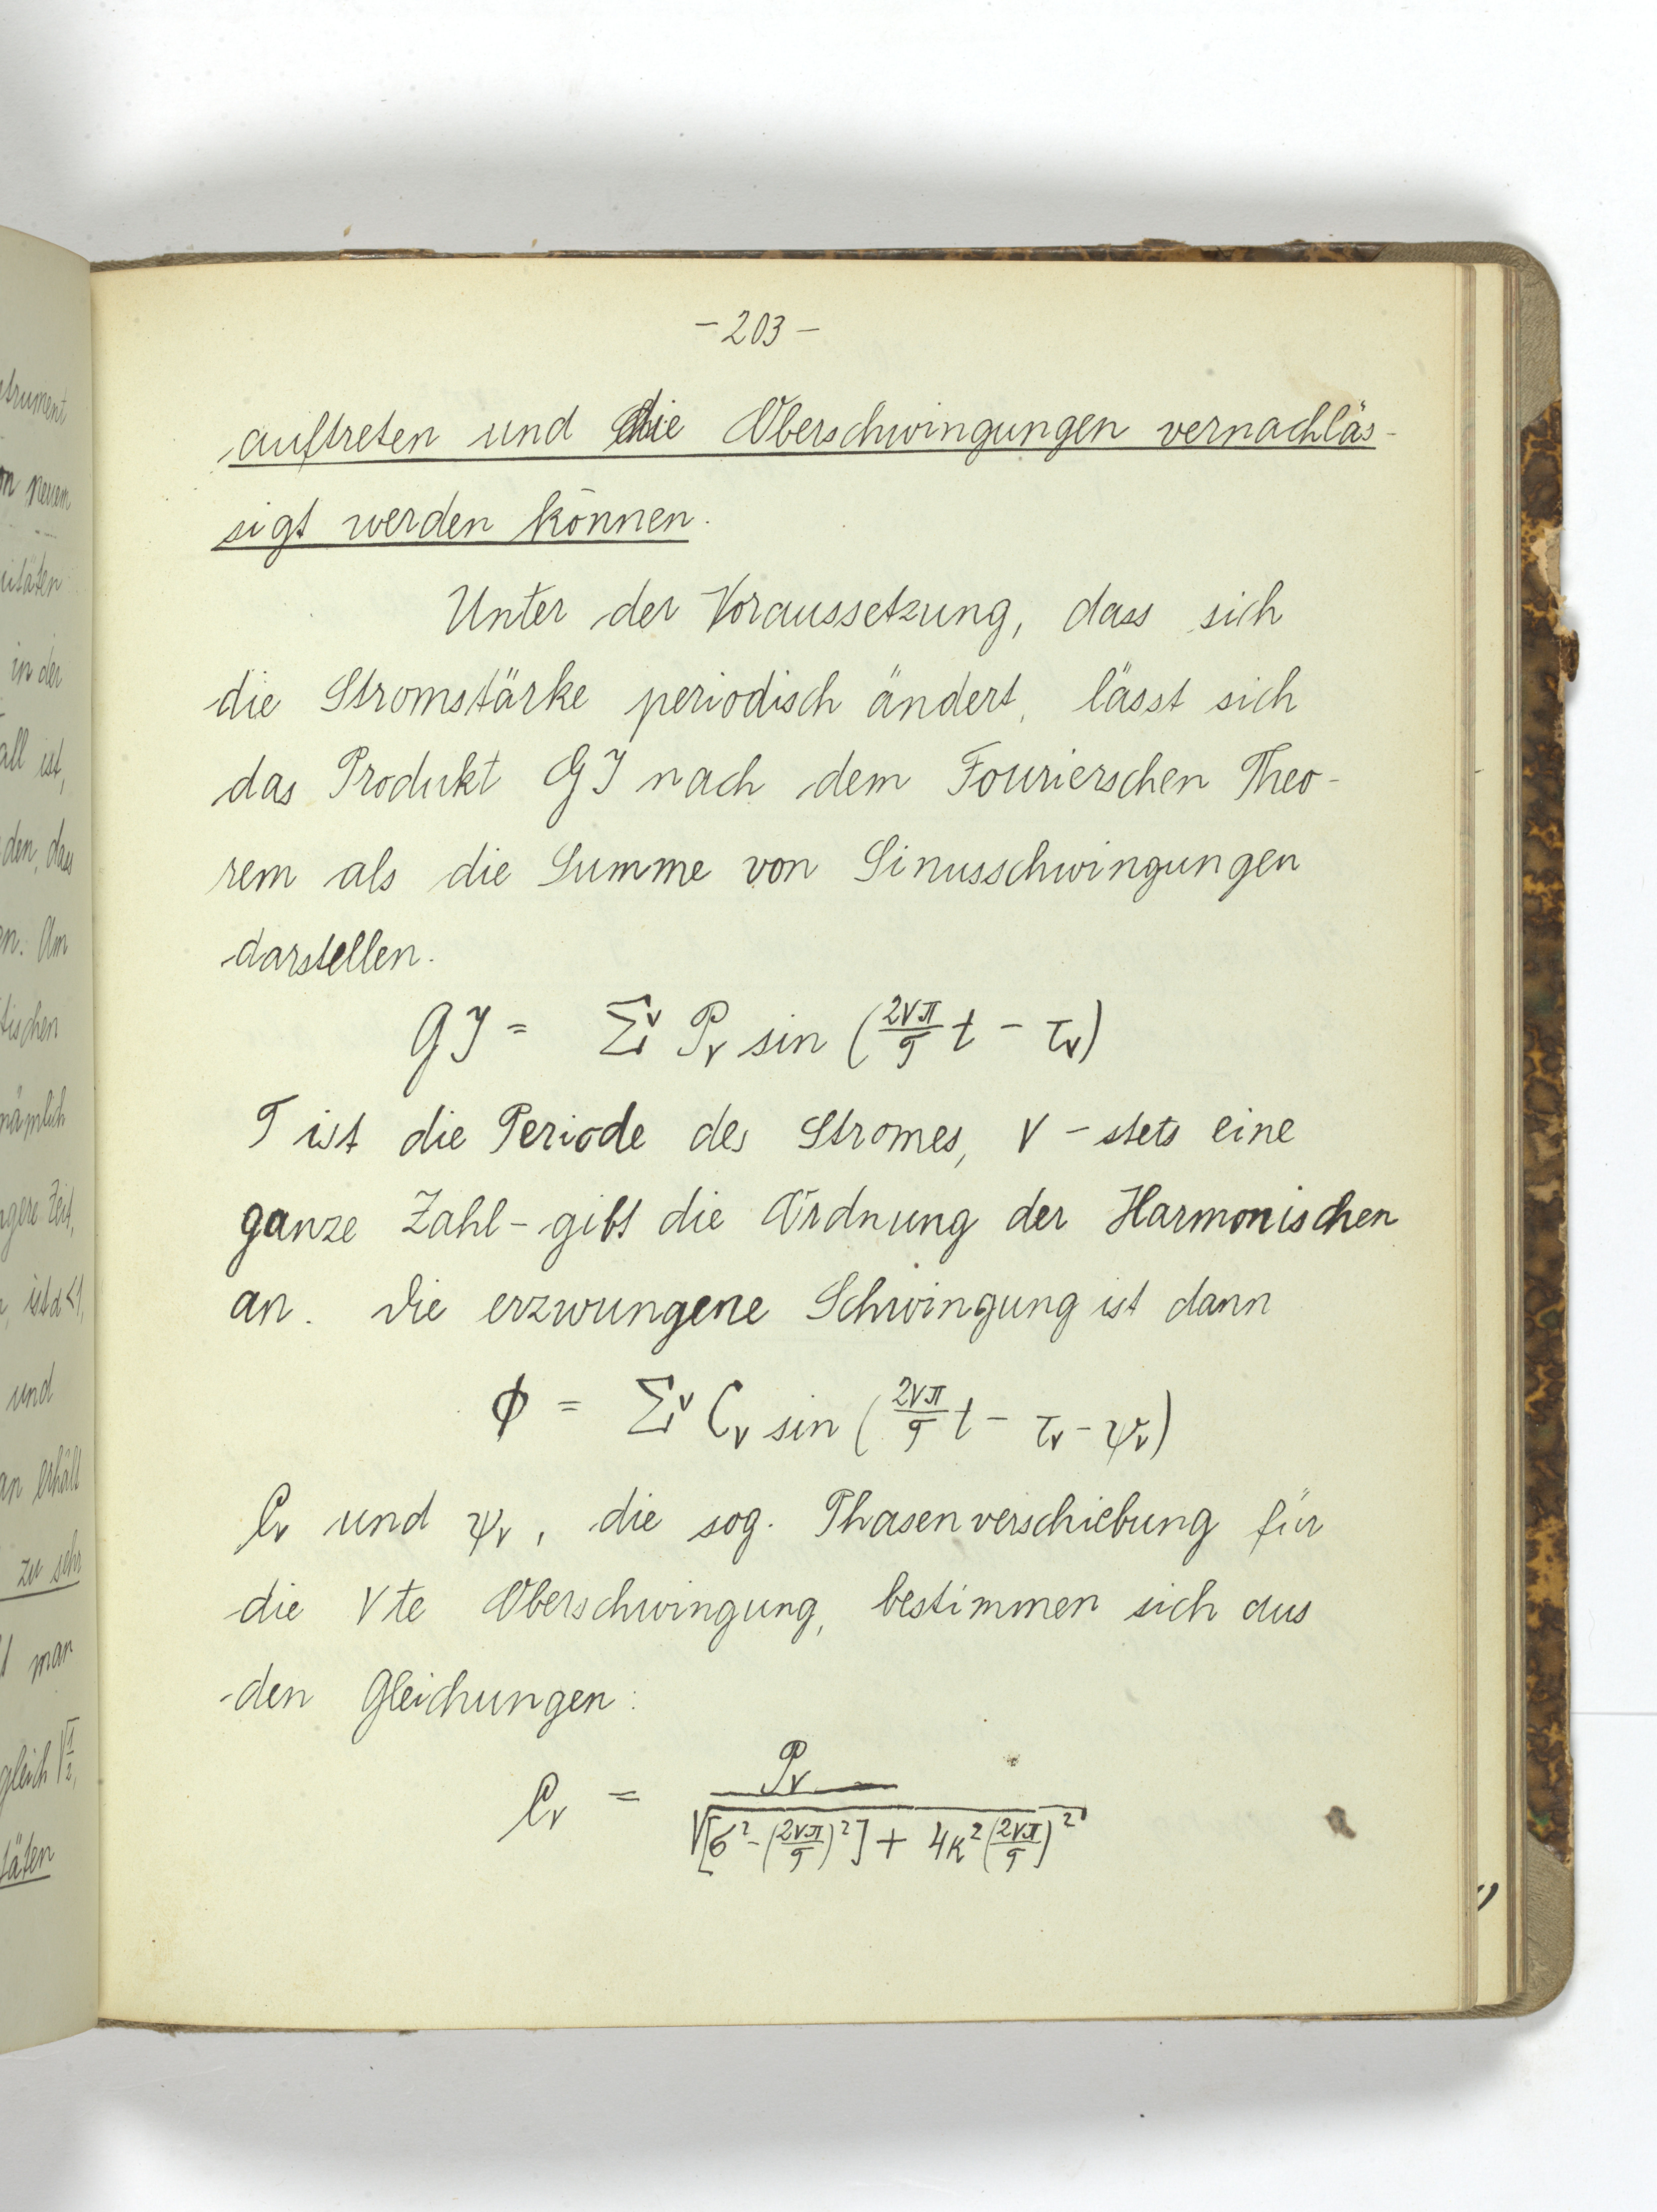 - 203 -
auftreten und die Oberschwingungen vernachläs-
sigt werden können.
Unter der Voraussetzung, dass sich
die Stromstärke periodisch ändert, lässt sich
das Produkt GJ nach dem Fourierschen Theo-
rem als die Summe von Sinusschwingungen
darstellen.
GJ = Σ^ν P_ν sin (2νπ/T t - τ_ν)
T ist die Periode des Stromes, ν - stets eine
ganze Zahl - gibt die Ordnung der Harmonischen
an. Die erzwungene Schwingung ist dann
ϕ = Σ^ν C_ν sin (2νπ/T t - τ_ν - ψ_ν)
C_ν und ψ_ν, die sog. Phasenverschiebung für
die νte Oberschwingung, bestimmen sich aus
den Gleichungen:
C_ν = P_ν / √[σ² - (2νπ/T)²] + 4κ² (2νπ/T)²
strument
neuem
itäten
in der
all ist,
den, dass
en. Am
tischen
nämlich
ngere Zeit,
ist α < 1,
und
an erhält
zu sehr
t man
gleich √1/2,
täten